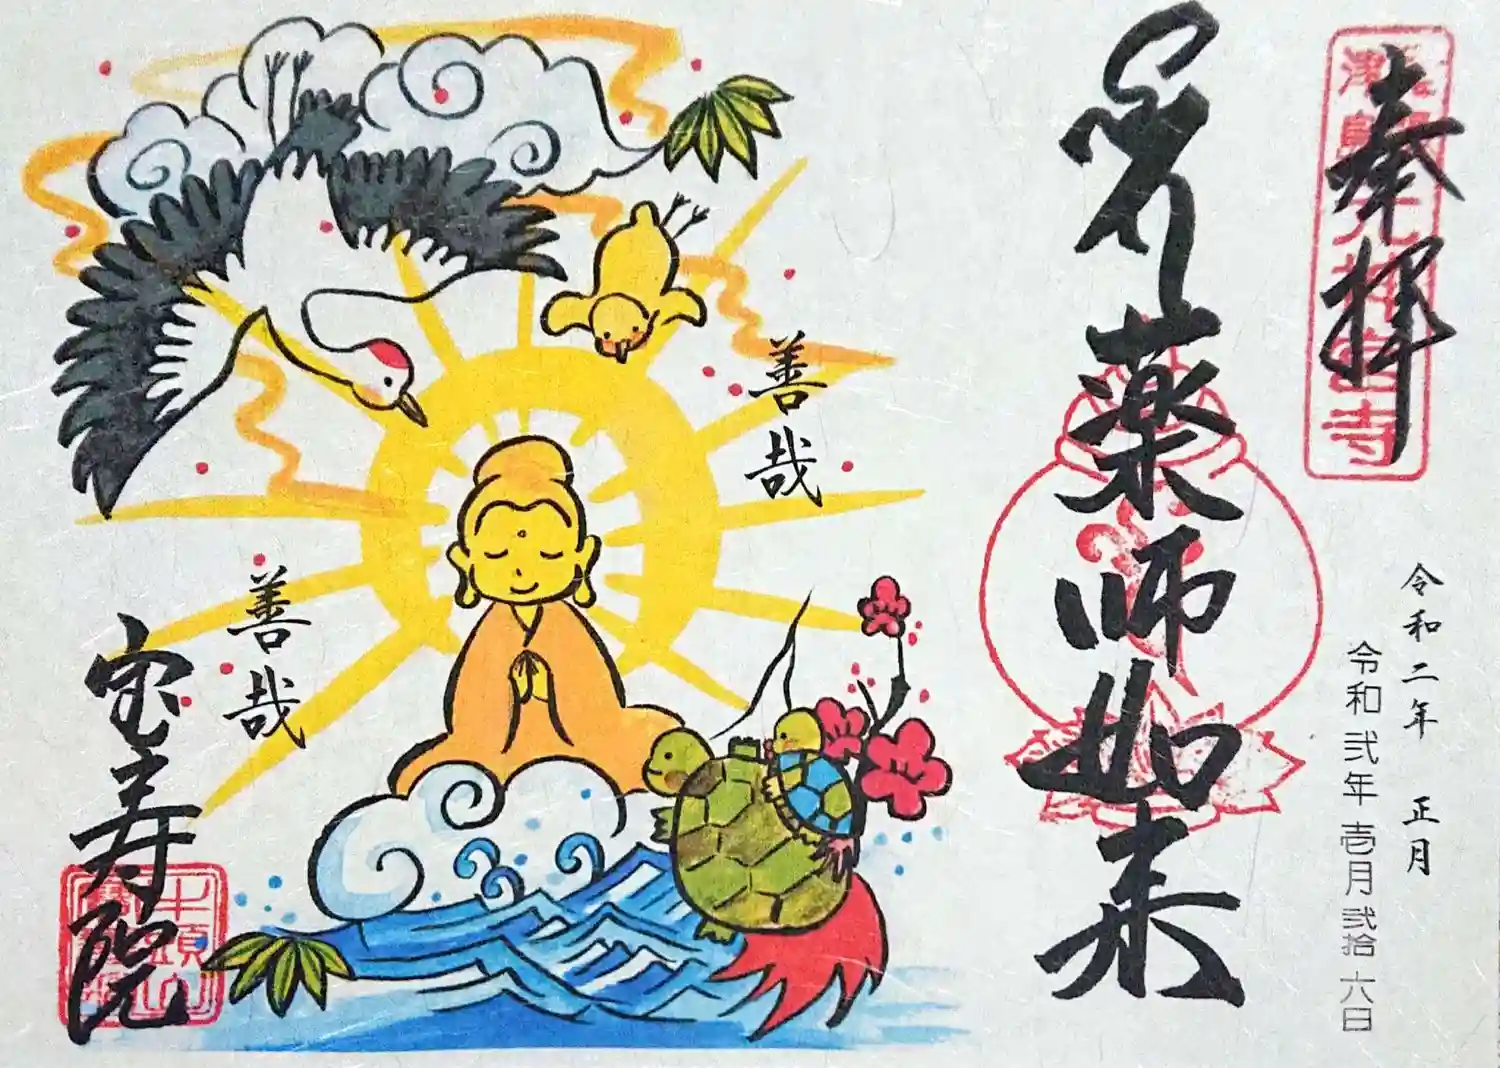 奉拝
令和二年 正月
令和弐年壱月弐拾六日
薬師如来
善哉
善哉
宝寿院